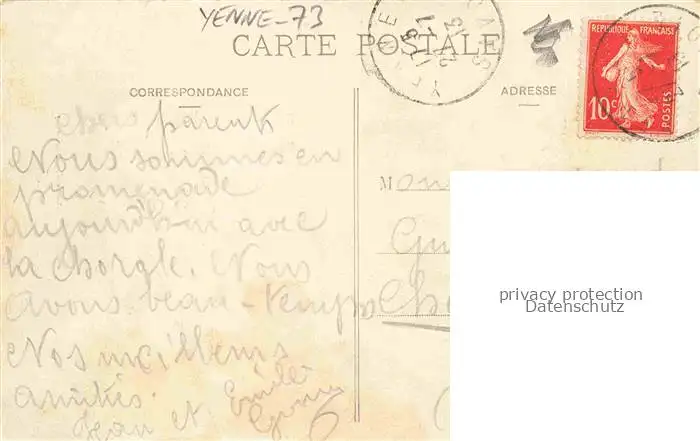 YENNE-73
CARTE POSTALE
RÉPUBLIQUE FRANÇAISE
10c
POSTES
CORRESPONDANCE
ADRESSE
chers parents
Nous sommes en
promenade
aujourd'hui avec
la chorgle. Nous
avons beau-temps
Nos meilleurs
amitiés.
Jean et Emile
M
privacy protection
Datenschutz